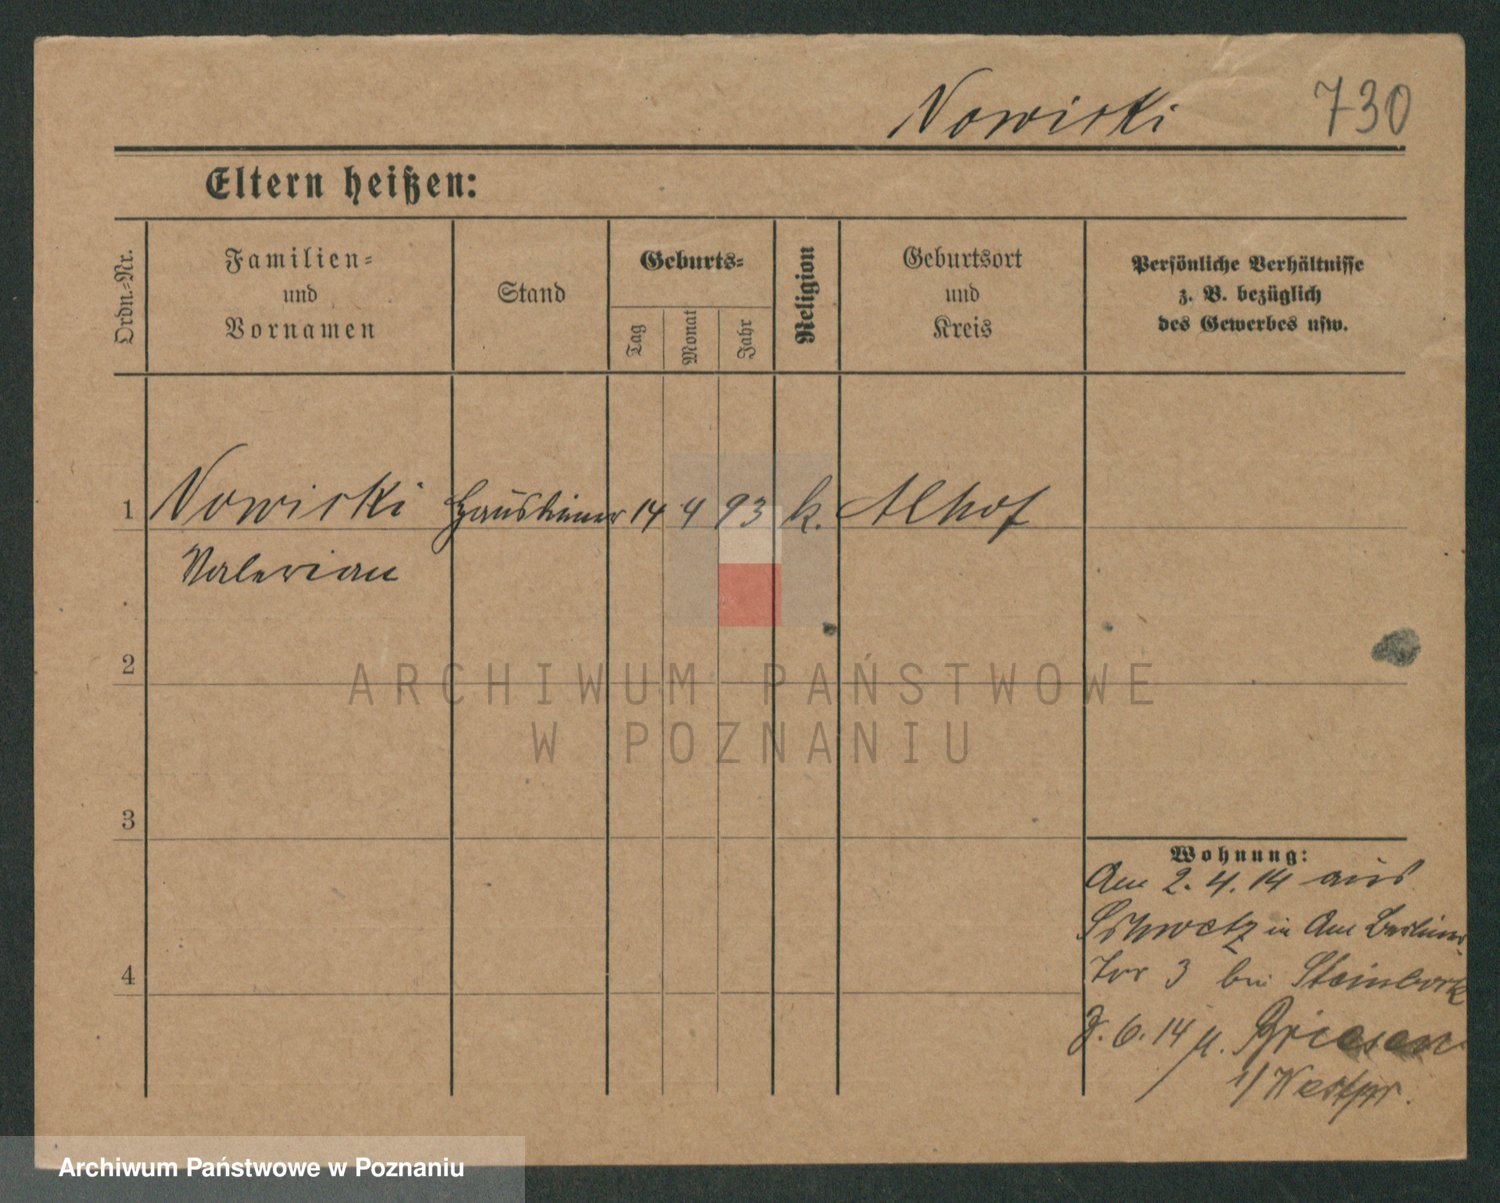 Nowicki 730
Eltern heißen:
Ordn.-Nr.
Familien-
und
Vornamen
Stand
Geburts-
Tag
Monat
Jahr
Religion
Geburtsort
und
Kreis
Persönliche Verhältnisse
z. B. bezüglich
des Gewerbes usw.
1 Nowicki Hausdiener 14 4 93 k. Althof
Valerian
2
ARCHIWUM PAŃSTWOWE
W POZNANIU
3
Wohnung:
Am 2. 4. 14 aus
Schwetz in Am Berliner
4
Tor 3 bei Steinbock
6. 14 n. Briesen
i/ Westpr.
Archiwum Państwowe w Poznaniu